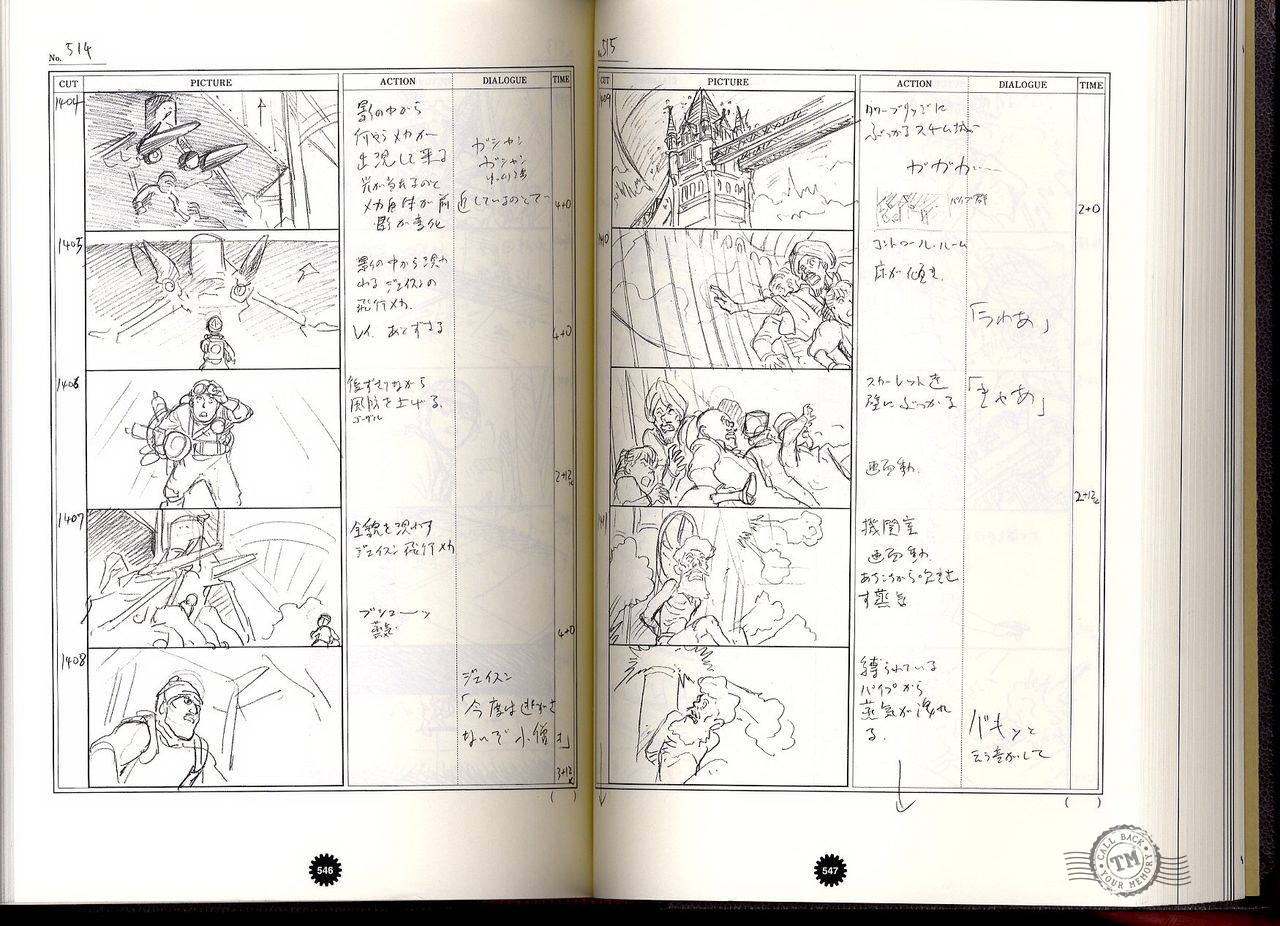 No. 514
CUT PICTURE ACTION DIALOGUE TIME
1404
影の中から
何やらメカが
出現して来る
ガシャン
ガシャン
光が当れるのと
メカ自体が前進しているのとで
影が変化
4+0
1405
影の中から現わ
れるジェイソンの
飛行メカ.
レイ. あとずさる
4+0
1406
後ずさりながら
風防を上げる.
ゴーグル
2+12
1407
全貌を現わす
ジェイソン飛行メカ
ブシューーッ
蒸気.
4+0
1408
ジェイソン
「今度は逃がさ
ないぞ小僧オ」
3+12
( )
546
515
CUT PICTURE ACTION DIALOGUE TIME
1409
タワーブリッジに
ぶつかるスチーム城
ガガガ…
パイプ群
2+0
コントロール・ルーム
床が傾き.
「うわあ」
スカーレットを
壁にぶつかる
「きゃあ」
画面動.
2+12
機関室
画面動
あちこちから吹き出
す蒸気
縛られている
パイプから
蒸気が洩れ
る.
バキッと
云う音がして
( )
547
CALL BACK
TM
YOUR MEMORY